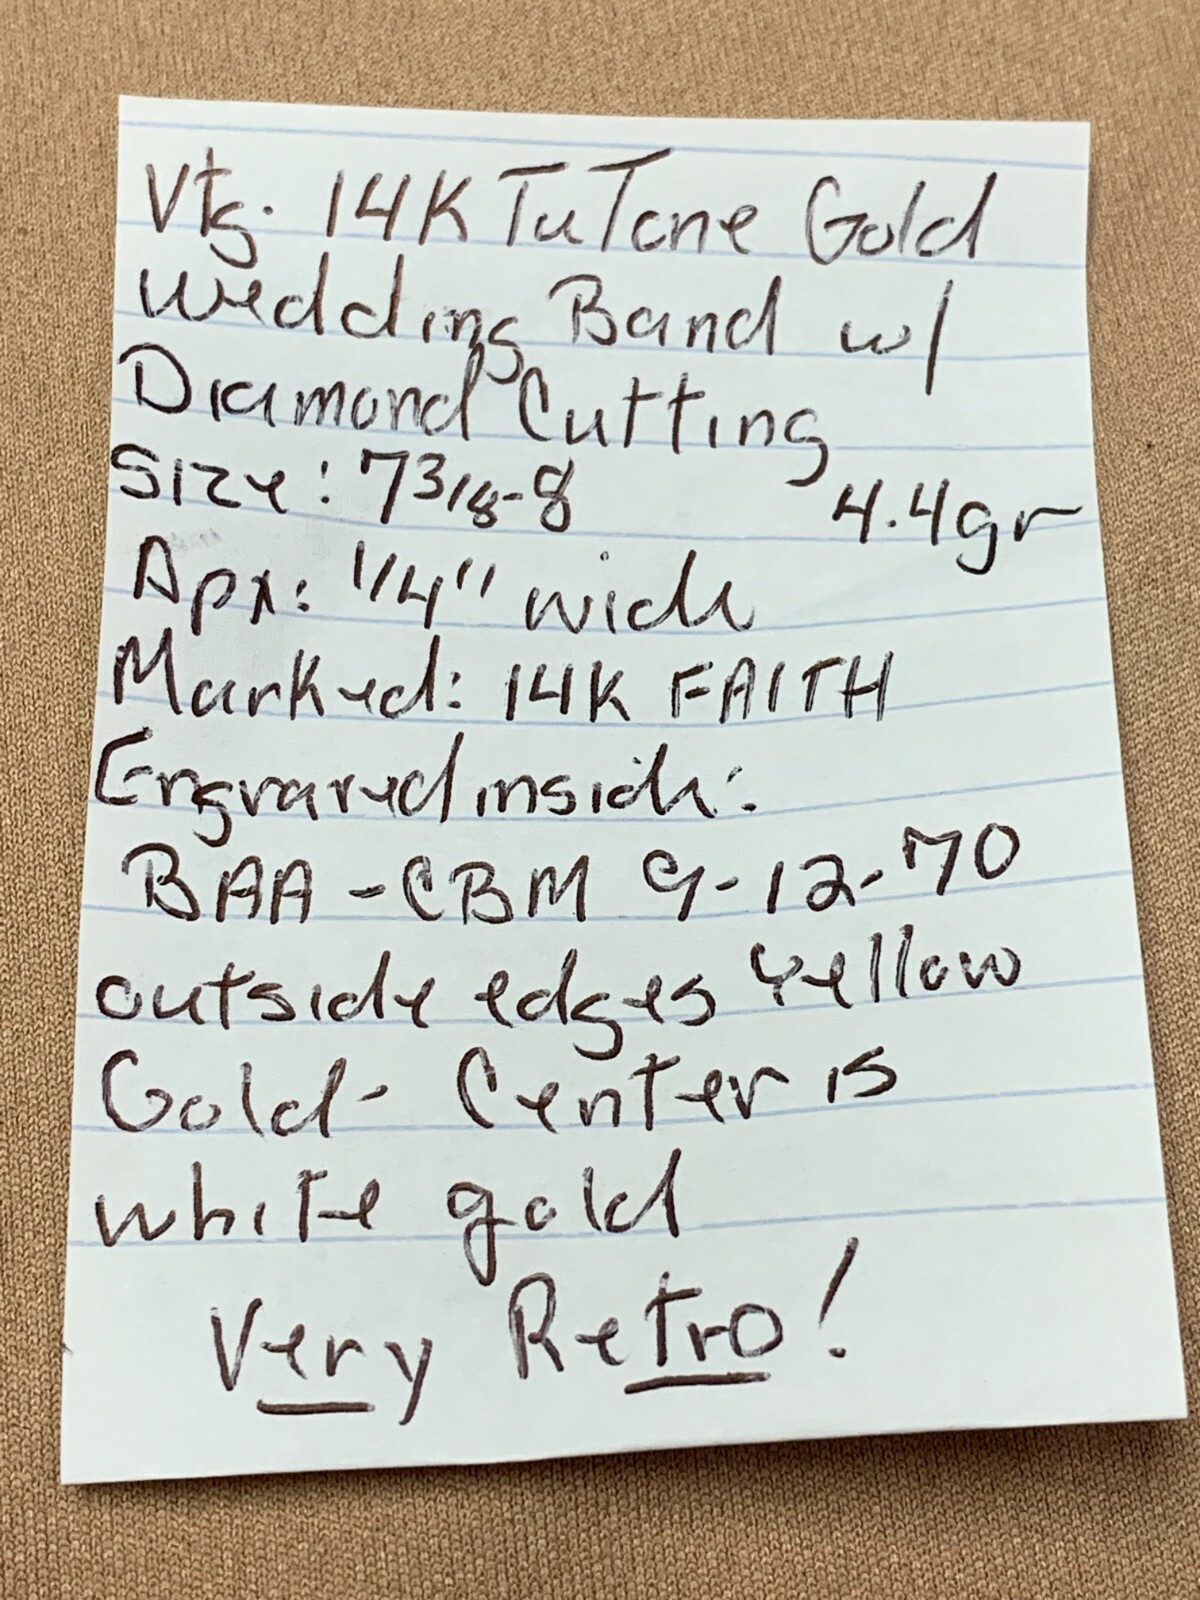 Vtg. 14K TuTone Gold
Wedding Band w/
Diamond Cutting
Size: 7 3/8-8 4.4gr
Apx: 1/4" wide
Marked: 14K FAITH
Engraved inside:
BAA - CBM 9-12-70
outside edges Yellow
Gold- Center is
white gold
Very Retro!